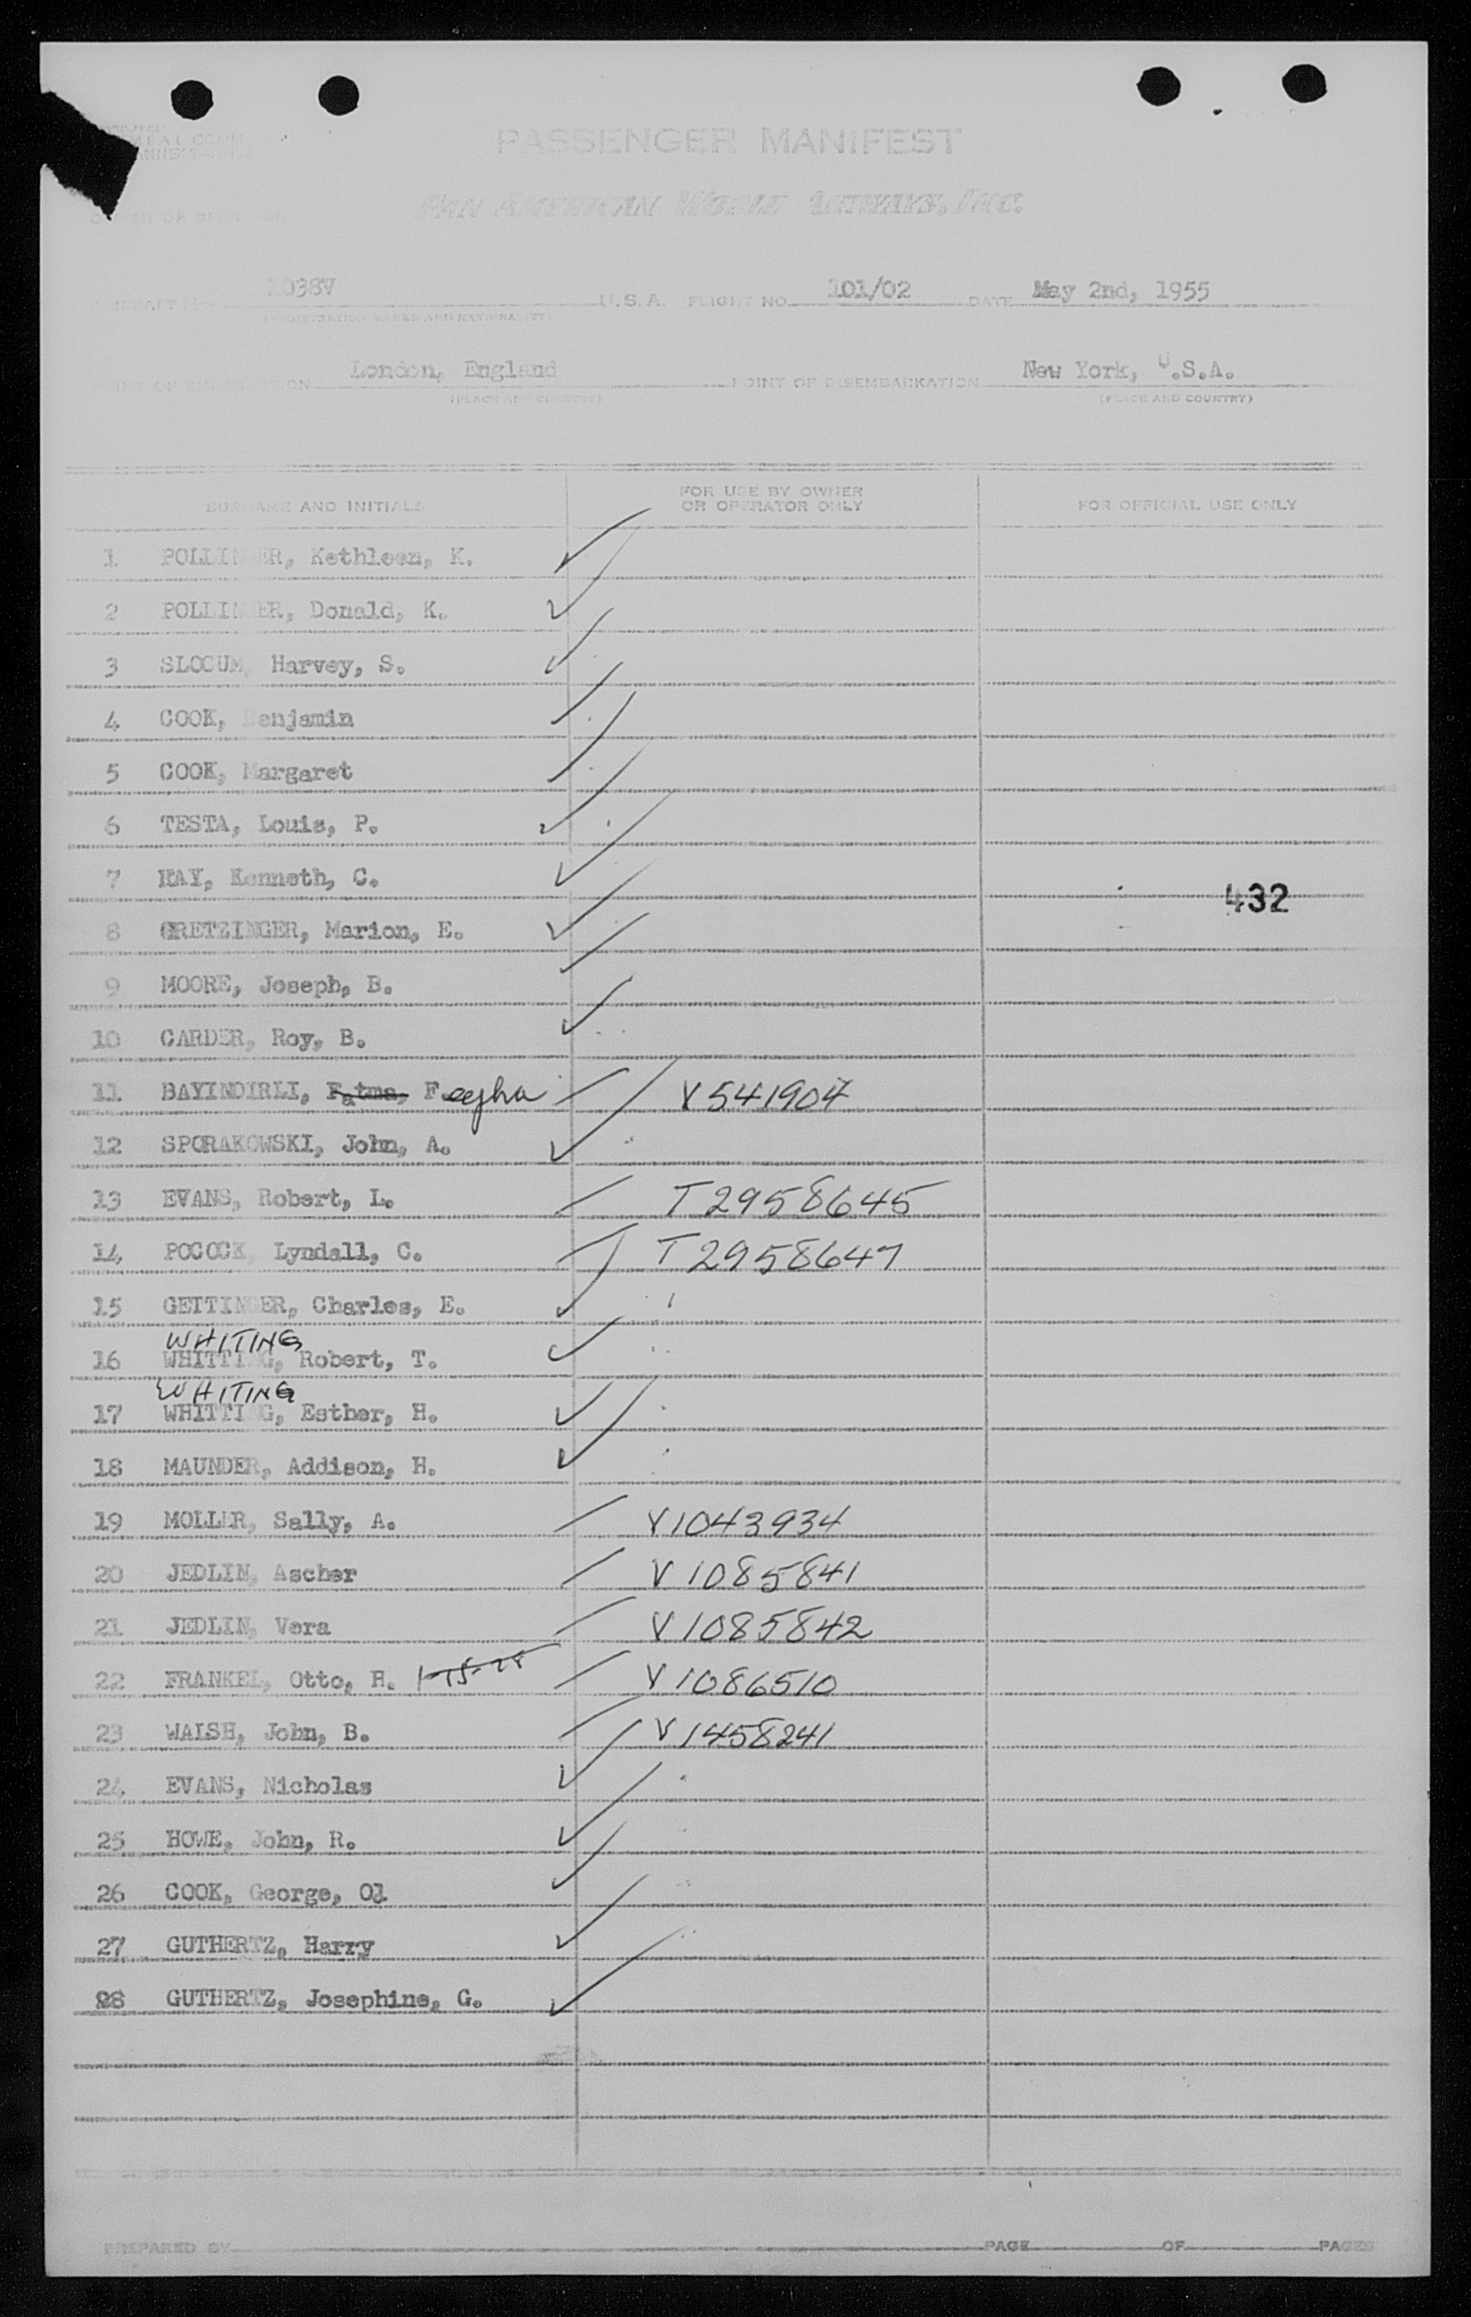 PASSENGER MANIFEST
PAN AMERICAN WORLD AIRWAYS, INC.
1038V U.S.A. FLIGHT NO. 101/02 DATE May 2nd, 1955
London, England POINT OF DISEMBARKATION New York, U.S.A.
(PLACE AND COUNTRY) (PLACE AND COUNTRY)
SURNAME AND INITIALS FOR USE BY OWNER OR OPERATOR ONLY FOR OFFICIAL USE ONLY
1 POLLINGER, Kathleen, K.
2 POLLINGER, Donald, K.
3 SLOCUM, Harvey, S.
4 COOK, Benjamin
5 COOK, Margaret
6 TESTA, Louis, P.
7 RAY, Kenneth, C.
432
8 GRETZINGER, Marion, E.
9 MOORE, Joseph, B.
10 CARDER, Roy, B.
11 BAYINDIRLI, Fatma, Feyha V541904
12 SPORAKOWSKI, John, A.
13 EVANS, Robert, L. T2958645
14 POCOCK, Lyndall, C. T2958647
15 GETTINGER, Charles, E.
WHITING
16 WHITTING, Robert, T.
WHITING
17 WHITTING, Esther, H.
18 MAUNDER, Addison, H.
19 MOLLER, Sally, A. V1043934
20 JEDLIN, Ascher V1085841
21 JEDLIN, Vera V1085842
22 FRANKEL, Otto, H. V1086510
23 WALSH, John, B. V1458241
24 EVANS, Nicholas
25 HOWE, John, R.
26 COOK, George, Ol
27 GUTHERTZ, Harry
28 GUTHERTZ, Josephine, G.
PREPARED BY PAGE OF PAGES